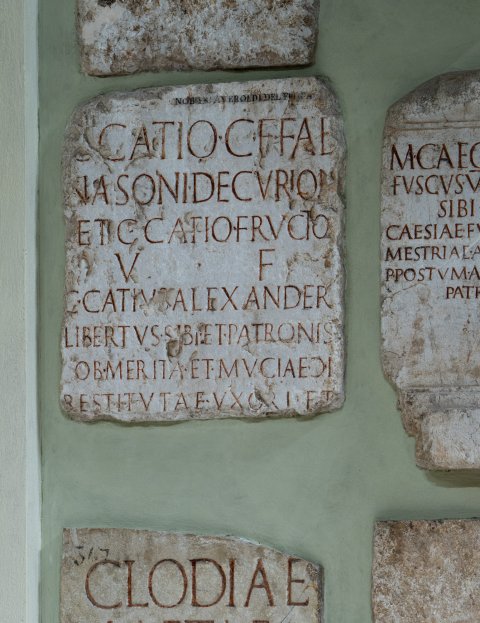 C·CATIO·C·F·FAB
IASONI·DECVRION
ET·C·CATIO·FRVCTO
V · F
C·CATIVS·ALEXANDER
LIBERTVS·SIBI·ET·PATRONIS
OB·MERITA·ET·MVCIAE·
RESTITVTAE·VXORI·ET
M·CAE
FVSCVS·V
SIBI
CAESIAE·FV
MESTRIAL·A
P·POSTVMA
PATR
317
CLODIAE